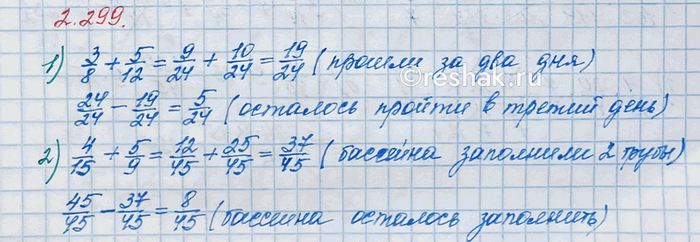 2.299.
1) 3/8 + 5/12 = 9/24 + 10/24 = 19/24 (прошли за два дня)
©reshak.ru
24/24 - 19/24 = 5/24 (осталось пройти в третий день)
2) 4/15 + 5/9 = 12/45 + 25/45 = 37/45 (бассейна заполнили 2 трубы)
45/45 - 37/45 = 8/45 (бассейна осталось заполнить)